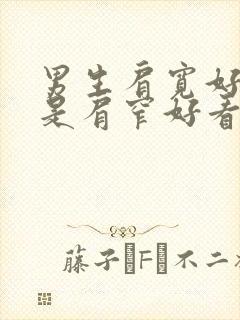 男生肩宽好
是肩窄好看
藤子·F·不二